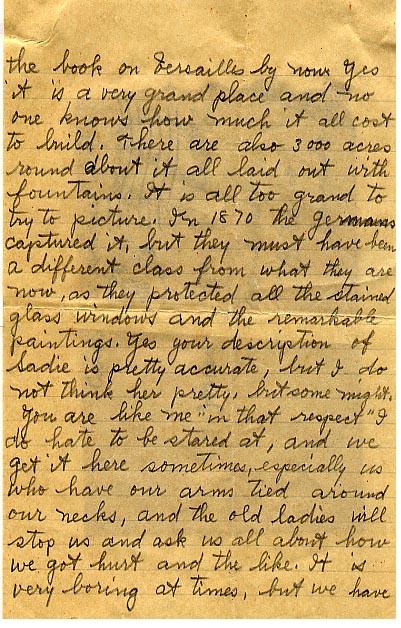 the book on Versailles by now. Yes
it is a very grand place and no
one knows how much it all cost
to build. There are also 3000 acres
round about it all laid out with
fountains. It is all too grand to
try to picture. In 1870 the Germans
captured it, but they must have been
a different class from what they are
now, as they protected all the stained
glass windows and the remarkable
paintings. Yes your description of
Sadie is pretty accurate, but I do
not think her pretty, but some might.
You are like me "in that respect" I
do hate to be stared at, and we
get it here sometimes, especially us
who have our arms tied around
our necks, and the old ladies will
stop us and ask us all about how
we got hurt and the like. It is
very boring at times, but we have